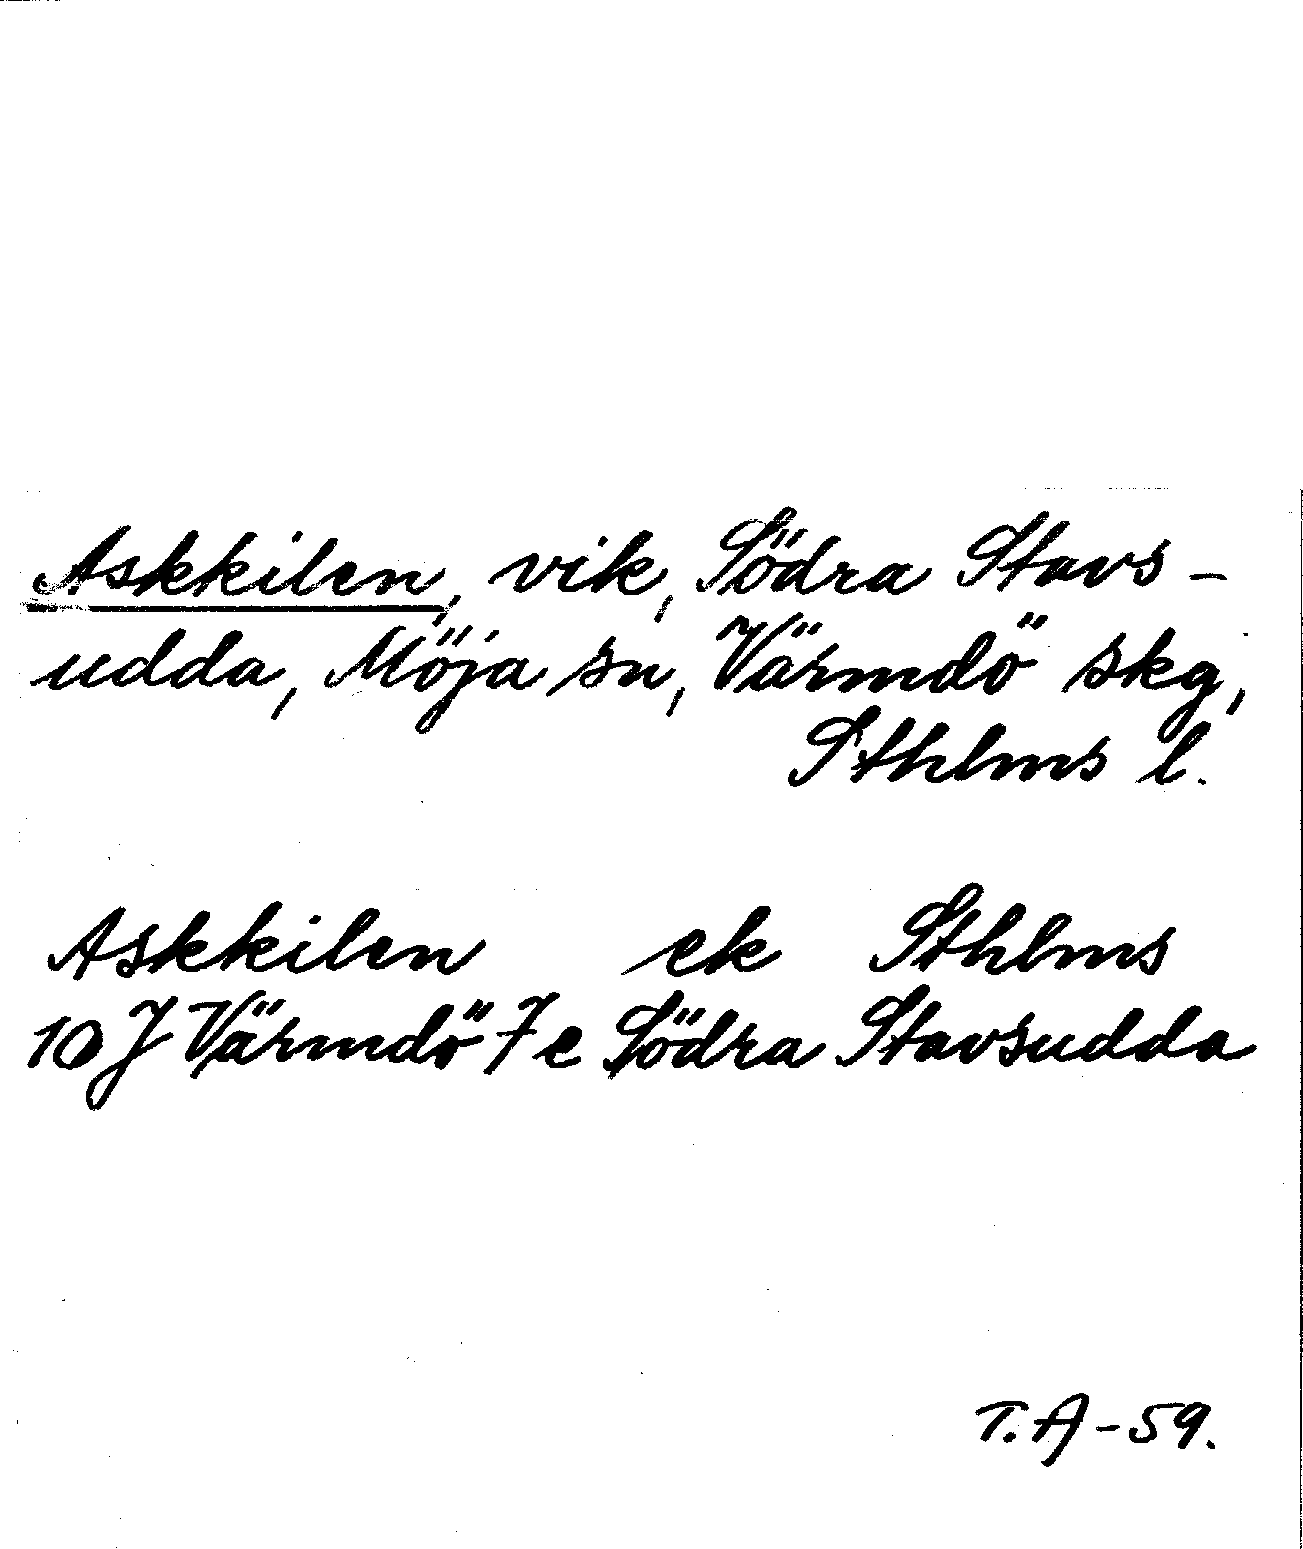 Askkilen, vik, Södra Stavs-
udda, Möja sn, Värmdö skg,
Sthlms l.
Askkilen ek Sthlms
10J Värmdö 7e Södra Stavsudda
T.A-59.